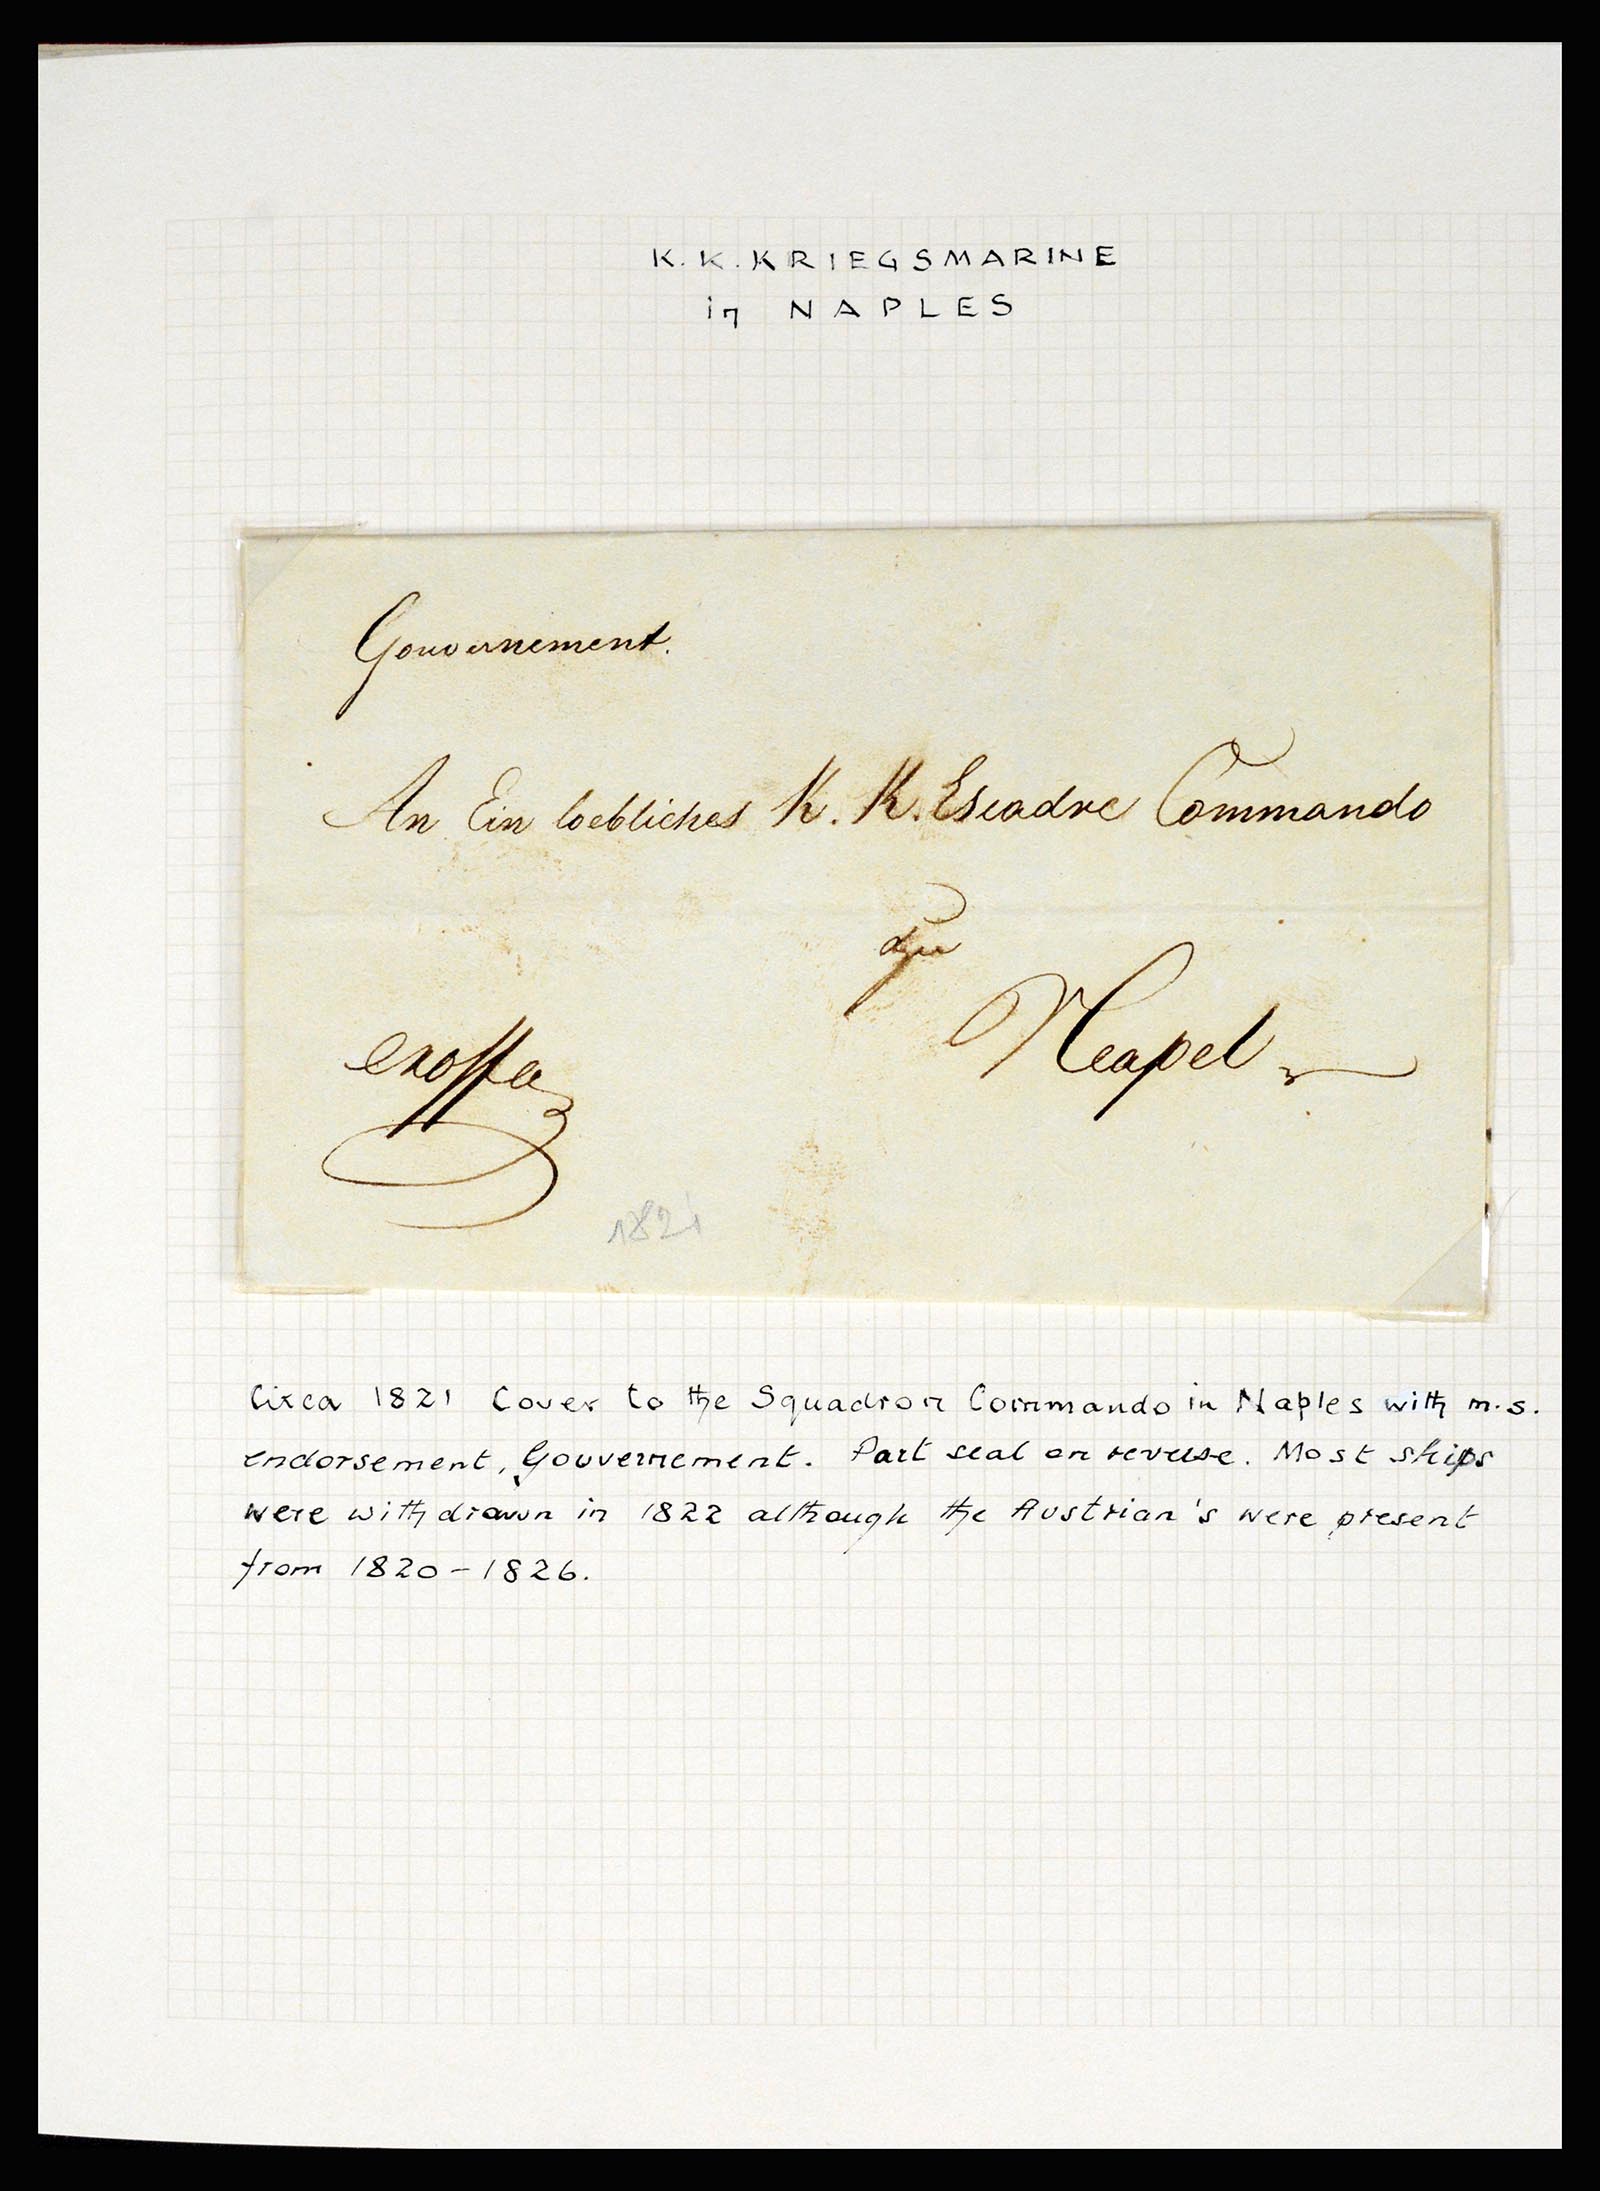 K. K. KRIEGSMARINE
in NAPLES
Gouvernement.
An Ein loebliches K. K. Escadre Commando
Neapel
exoffo
1821
Circa 1821 Cover to the Squadron Commando in Naples with m.s.
endorsement, Gouvernement. Part seal on reverse. Most ships
were withdrawn in 1822 although the Austrian's were present
from 1820-1826.